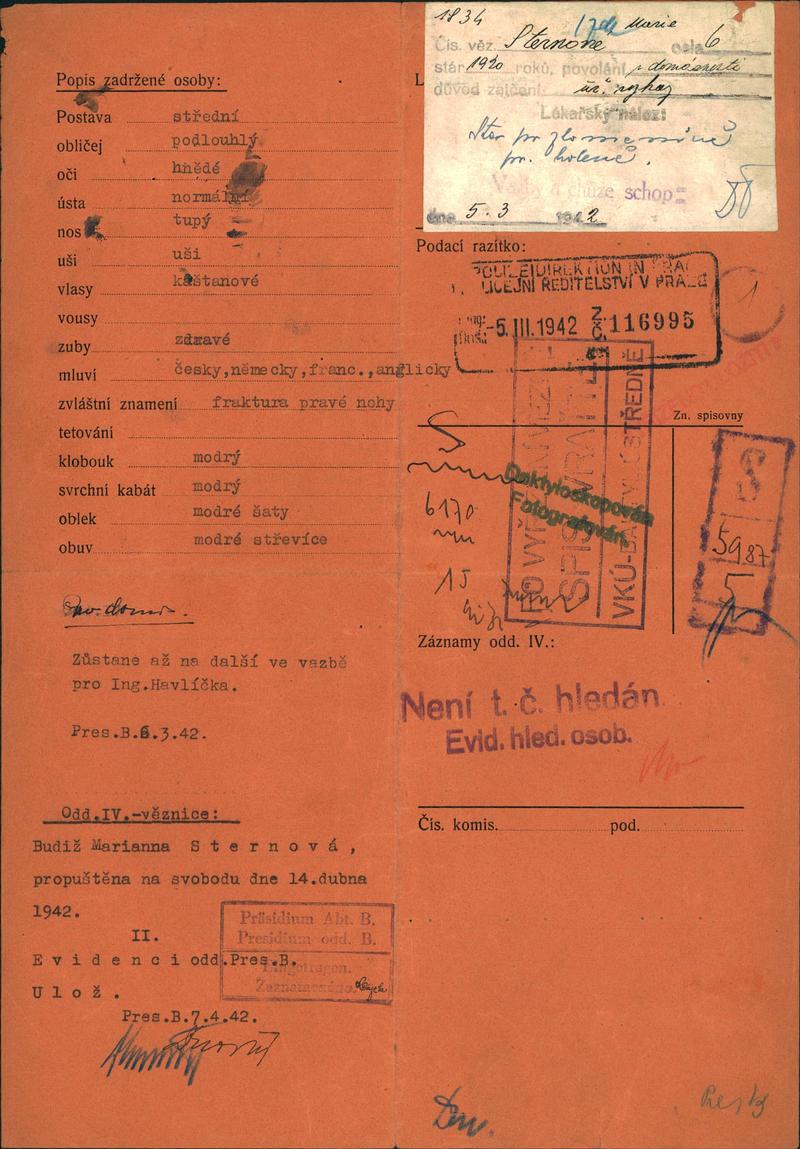 Popis zadržené osoby:
Postava střední
obličej podlouhlý
oči hnědé
ústa normální
nos tupý
uši uši
vlasy kaštanové
vousy
zuby zdravé
mluví česky,německy,franc.,anglicky
zvláštní znamení fraktura pravé nohy
tetování
klobouk modrý
svrchní kabát modrý
oblek modré šaty
obuv modré střevíce
Zůstane až na další ve vazbě
pro Ing.Havlíčka.
Pres.B.6.3.42.
Odd.IV.-věznice:
Budiž Marianna S t e r n o v á ,
propuštěna na svobodu dne 14.dubna
1942.
II.
E v i d e n c i odd.Pres.B.
U l o ž .
Pres.B.7.4.42.
Präsidium Abt. B.
Presidium odd. B.
Eingetragen.
Zaznamenáno.
1834 Marie
Čís. věz. Sternone cela 6
stár 1920 roků, povolání v domácnosti
důvod zajištění
Lékařský nález:
Stav po zlomenině
pr. holeně.
Vazby a chůze schop
dne 5. 3 1942
L
Podací razítko:
POLIZEIDIREKTION IN PRAG
POLICEJNÍ ŘEDITELSTVÍ V PRAZE
-5.III.1942 116995
1
Zn. spisovny
Daktyloskopován
Fotografován.
SPIS VRAŤTE
VKÚ-DAKTYL. ÚSTŘEDNĚ
S
5987
5
6170
15
Záznamy odd. IV.:
Není t. č. hledán
Evid. hled. osob.
Čís. komis. pod.